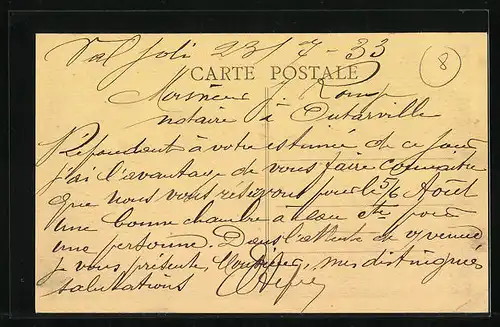 Val Joli 23/7-33
8
CARTE POSTALE
Monsieur J. Rouge
notaire à Outarville
Répondant à votre estimée de ce jour
j'ai l'avantage de vous faire connaitre
que nous vous réservons pour le 5/6 Aout
une bonne chambre à eau cte pour
une personne. Dans l'attente de
je vous présente, Monsieur, mes distingués
salutations